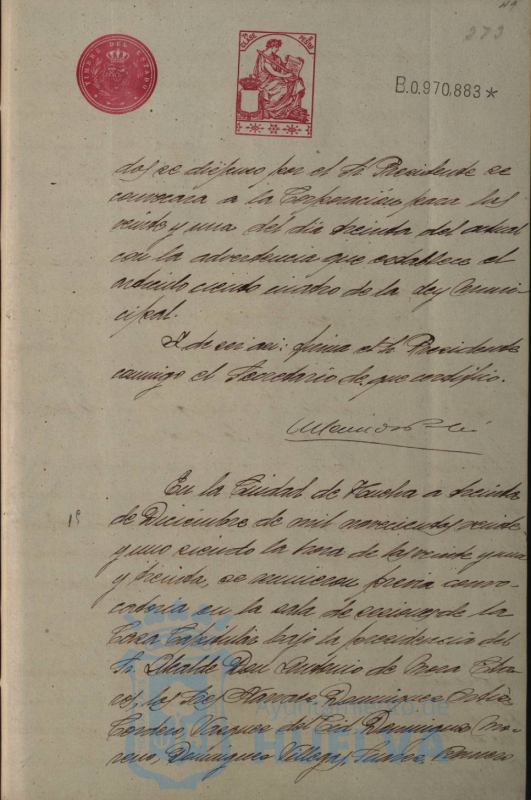 273
TIMBRE DEL ESTADO
CLASE
B.0.970,883*
dos se dispuso por el Sr. Presidente se
convocara a la Corporacion para las
veinte y una del dia treinta del actual
con la advertencia que establece el
articulo ciento cuatro de la ley Muni-
cipal.
Y de ser asi: firma el Sr. Presidente
conmigo el Secretario de que certifico.
En la Ciudad de Huelva a treinta
de Diciembre de mil novecientos veinte
y uno siendo la hora de las veinte y una
y treinta, se reunieron previa convo-
catoria en la sala de sesiones de la
Casa Capitular bajo la presidencia del
Sr. Alcalde Don Antonio de Mora Cla-
ros, los Sres. Dominguez
Cordero, Vazquez del Cid Dominguez Mo-
reno, Dominguez Villegas, Suarez,
Ayuntamiento de
HUELVA